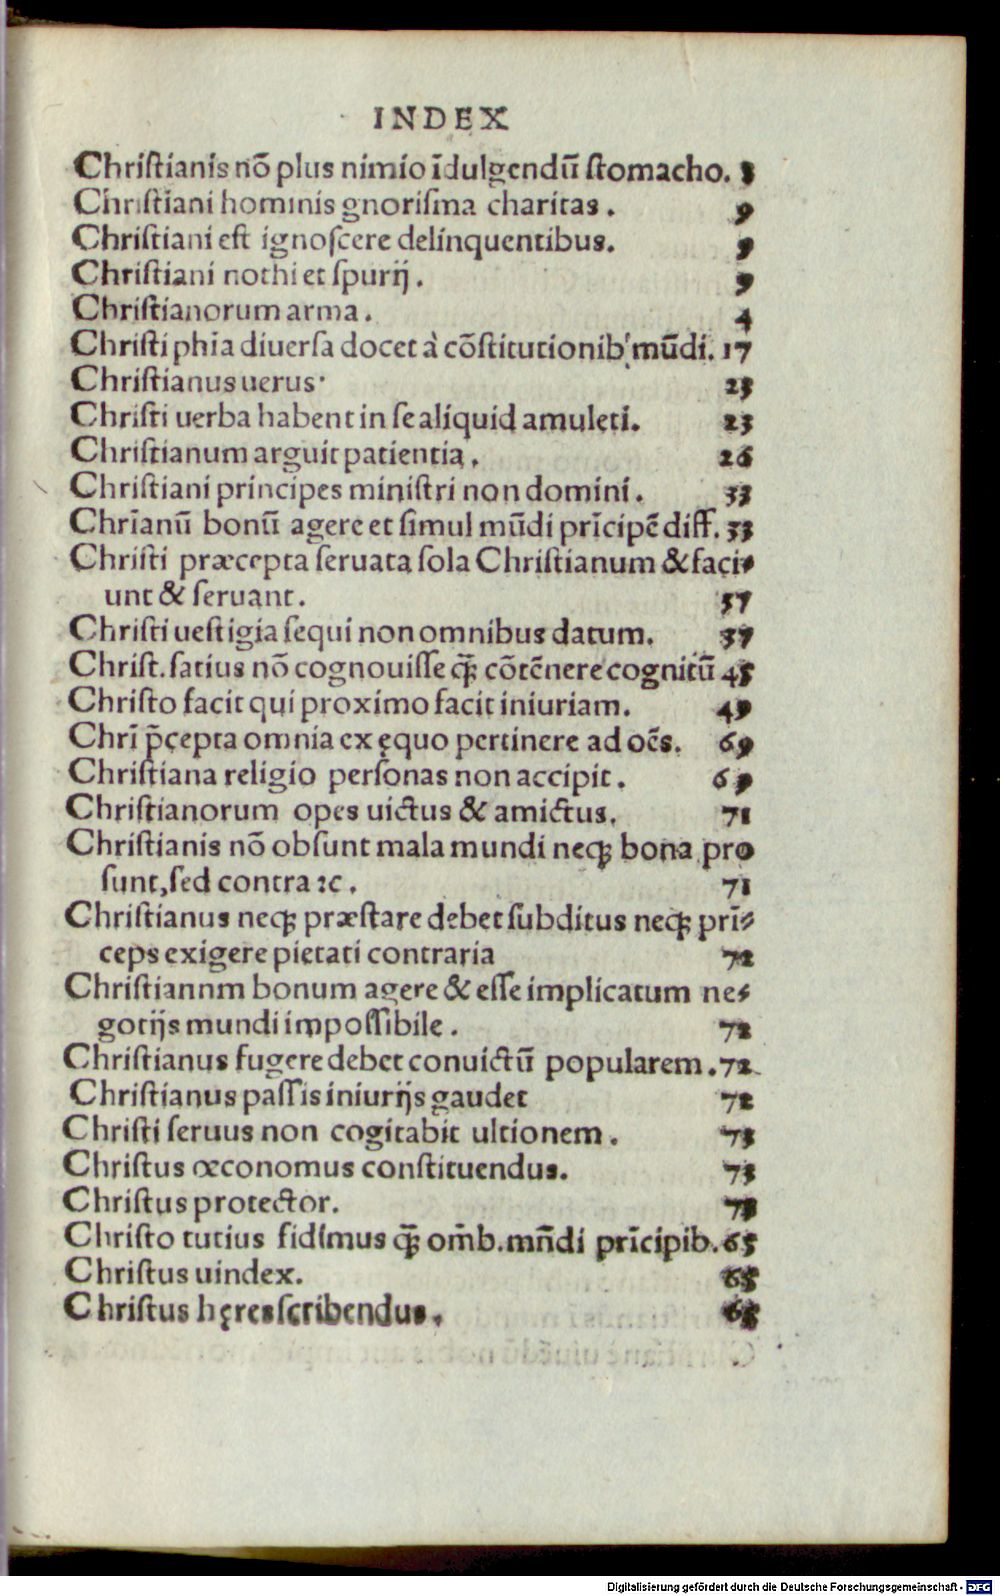 INDEX
Christianis nõ plus nimio ĩdulgendũ stomacho. 8
Christiani hominis gnorisma charitas. 9
Christiani est ignoscere delinquentibus. 9
Christiani nothi et spurij. 9
Christianorum arma. 4
Christi phia diuersa docet à cõstitutionib' mũdi. 17
Christianus uerus· 23
Christi uerba habent in se aliquid amuleti. 23
Christianum arguit patientia. 26
Christiani principes ministri non domini. 33
Chrĩanũ bonũ agere et simul mũdi prĩcipẽ diff. 33
Christi præcepta seruata sola Christianum & faci-
unt & seruant. 37
Christi uestigia sequi non omnibus datum. 37
Christ. satius nõ cognouisse q̃ꝫ cõtẽnere cognitũ 45
Christo facit qui proximo facit iniuriam. 49
Chrĩ p̃cepta omnia ex ęquo pertinere ad oẽs. 69
Christiana religio personas non accipit. 69
Christianorum opes uictus & amictus. 71
Christianis nõ obsunt mala mundi neqꝫ bona pro
sunt, sed contra ꝛc. 71
Christianus neqꝫ præstare debet subditus neqꝫ prĩ-
ceps exigere pietati contraria 72
Christiannm bonum agere & esse implicatum ne-
gotijs mundi impossibile. 72
Christianus fugere debet conuictũ popularem. 72
Christianus passis iniurijs gaudet 72
Christi seruus non cogitabit ultionem. 73
Christus œconomus constituendus. 73
Christus protector. 73
Christo tutius fidimus q̃ꝫ om̃b. mñdi prĩcipib. 65
Christus uindex. 65
Christus hęres scribendus. 65
Digitalisierung gefördert durch die Deutsche Forschungsgemeinschaft - DFG